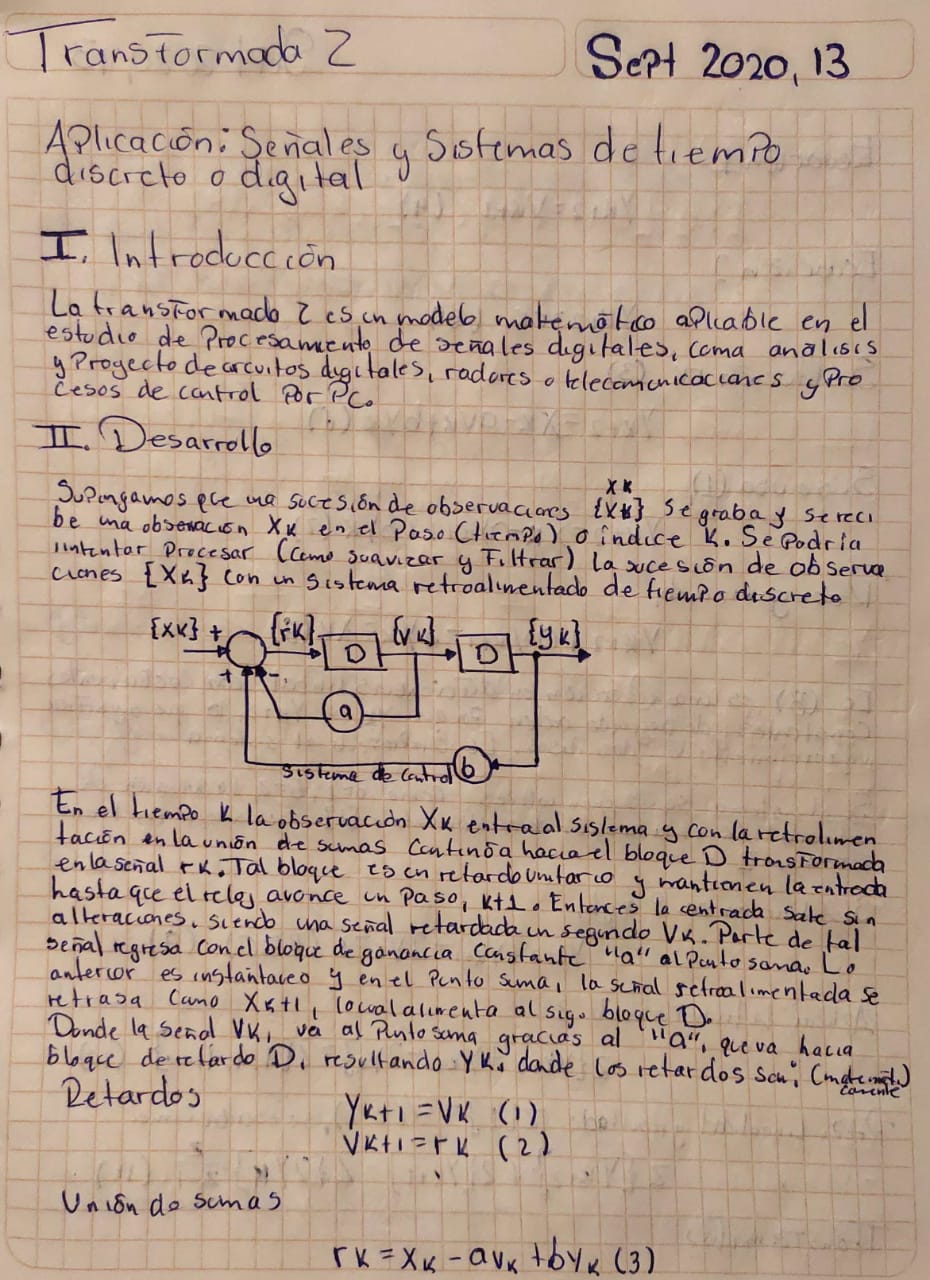 Transformada Z
Sept 2020, 13
Aplicación: Señales y Sistemas de tiempo
discreto o digital
I. Introducción
La transformada Z es un modelo matemático aplicable en el
estudio de Procesamiento de señales digitales, como análisis
y Proyecto de circuitos digitales, radares o telecomunicaciones y Pro
cesos de control Por PC.
II. Desarrollo
Supongamos que una sucesión de observaciones {Xk} Se graba y se reci
be una observación Xk en el Paso (tiempo) o índice K. Se Podría
intentar Procesar (como suavizar y Filtrar) la sucesión de observa
ciones {Xk} con un sistema retroalimentado de tiempo discreto
{Xk} + {rk} {vk} {yk}
D D
+ -
a
b
Sistema de Control
En el tiempo k la observación Xk entra al sistema y con la retrolimen
tación en la unión de sumas continúa hacia el bloque D transformada
en la señal rk. Tal bloque es un retardo unitario y mantienen la entrada
hasta que el reloj avance un Paso, k+1. Entonces la entrada sale sin
alteraciones, siendo una señal retardada un segundo Vk. Parte de tal
señal regresa con el bloque de ganancia constante "a" al Punto suma. Lo
anterior es instantáneo y en el Punto suma, la señal retroalimentada se
retrasa como Xk+1, lo cual alimenta al sig. bloque D.
Donde la señal Vk, va al Punto suma gracias al "a", que va hacia
bloque de retardo D, resultando Yk, donde los retardos son: (matemáti
camente)
Retardos
Yk+1 = Vk (1)
Vk+1 = rk (2)
Unión de sumas
rk = Xk - avk + byk (3)